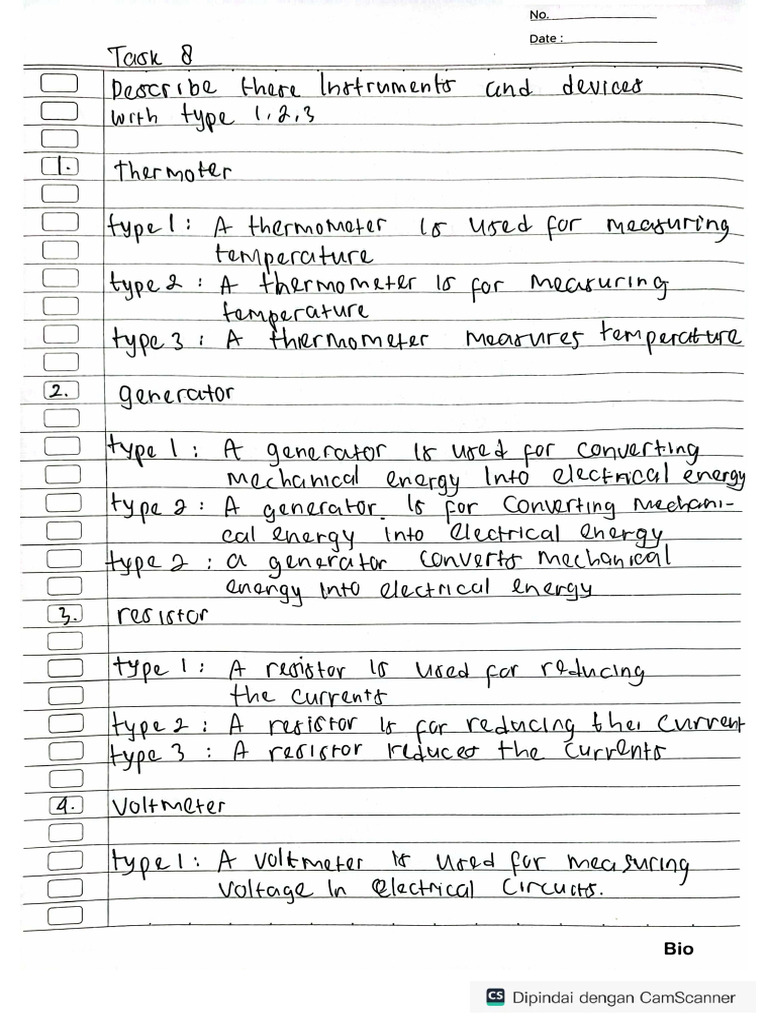 No.
Date :
Task 8
Describe these Instruments and devices
with type 1, 2, 3
1. thermoter
type 1 : A thermometer is used for measuring
temperature
type 2 : A thermometer is for measuring
temperature
type 3 : A thermometer measures temperature
2. generator
type 1 : A generator is used for converting
mechanical energy into electrical energy
type 2 : A generator is for converting mechani-
cal energy into electrical energy
type 2 : a generator converts mechanical
energy into electrical energy
3. resistor
type 1 : A resistor is used for reducing
the currents
type 2 : A resistor is for reducing the current
type 3 : A resistor reduces the currents
4. Voltmeter
type 1 : A voltmeter is used for measuring
voltage in electrical circuits.
Bio
CS Dipindai dengan CamScanner